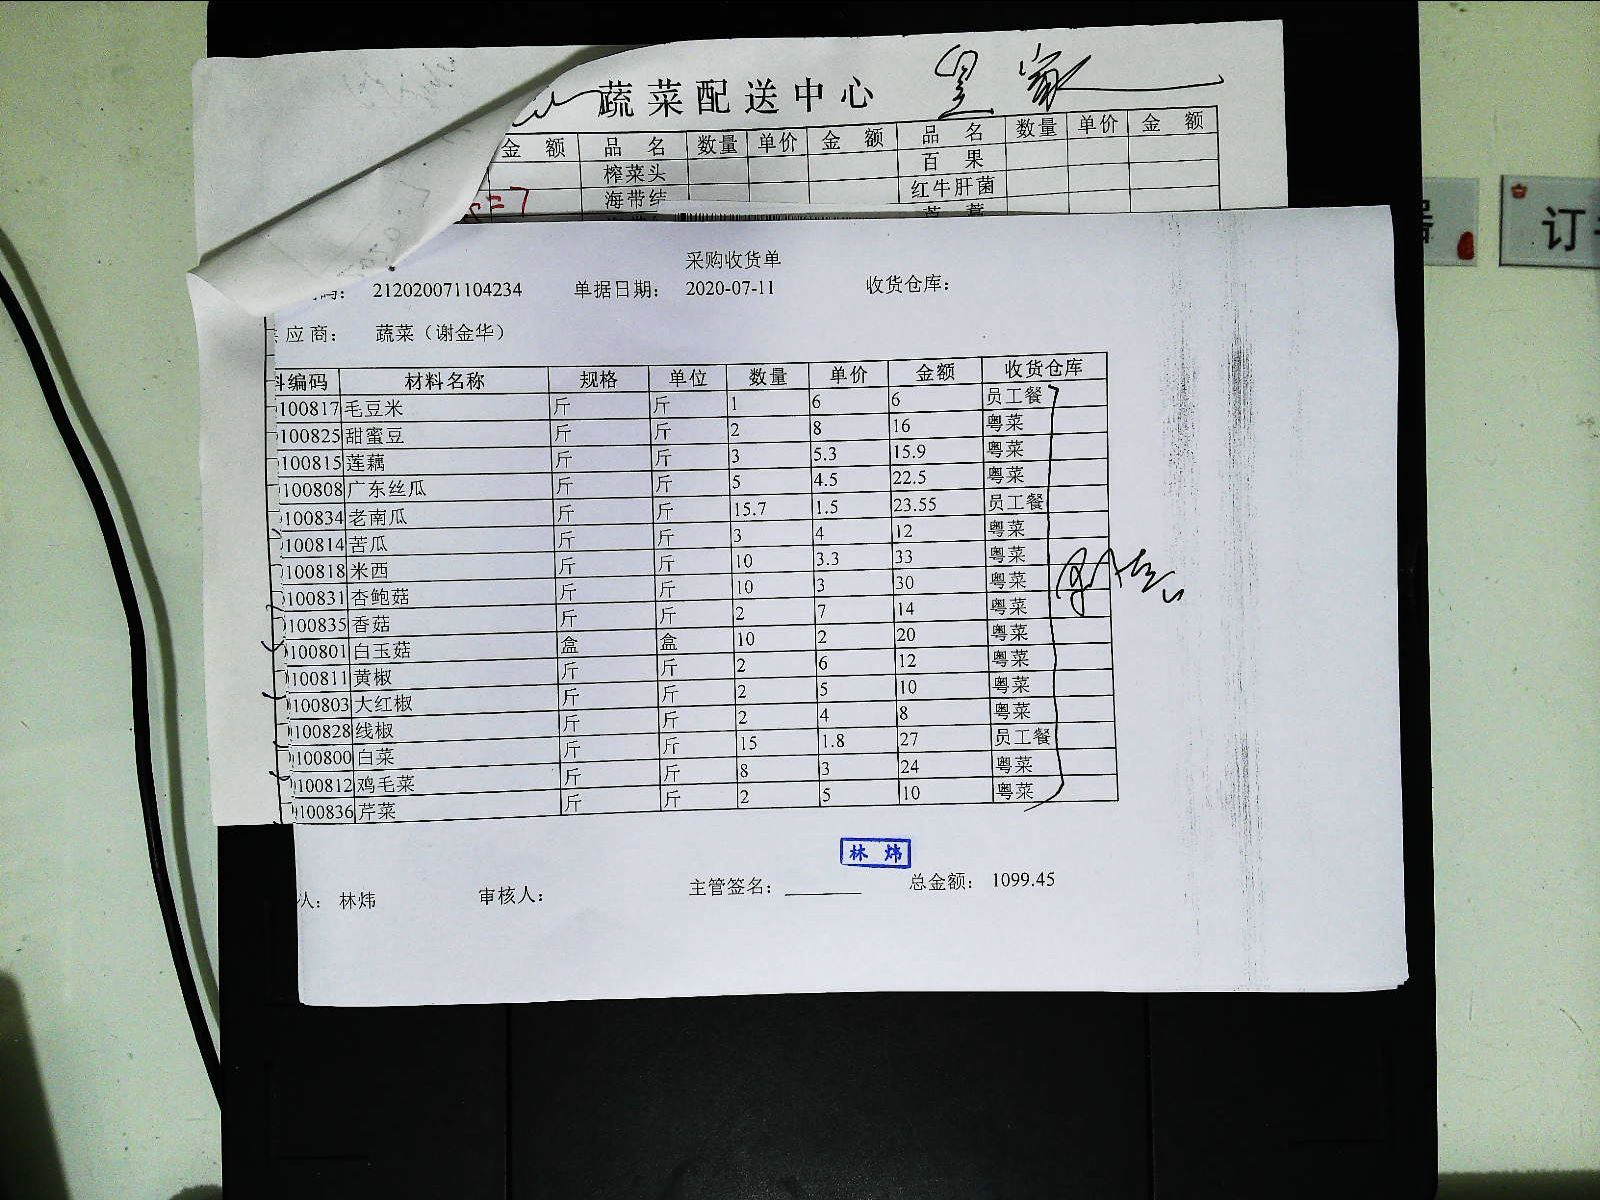 蔬菜配送中心
金 额 品 名 数量 单价 金 额 品 名 数量 单价 金 额
榨菜头 百 果
=7 海带结 红牛肝菌
采购收货单
码： 212020071104234 单据日期： 2020-07-11 收货仓库：
应商： 蔬菜（谢金华）
料编码 材料名称 规格 单位 数量 单价 金额 收货仓库
100817 毛豆米 斤 斤 1 6 6 员工餐
100825 甜蜜豆 斤 斤 2 8 16 粤菜
100815 莲藕 斤 斤 3 5.3 15.9 粤菜
100808 广东丝瓜 斤 斤 5 4.5 22.5 粤菜
100834 老南瓜 斤 斤 15.7 1.5 23.55 员工餐
100814 苦瓜 斤 斤 3 4 12 粤菜
100818 米西 斤 斤 10 3.3 33 粤菜
100831 杏鲍菇 斤 斤 10 3 30 粤菜
100835 香菇 斤 斤 2 7 14 粤菜
100801 白玉菇 盒 盒 10 2 20 粤菜
100811 黄椒 斤 斤 2 6 12 粤菜
100803 大红椒 斤 斤 2 5 10 粤菜
100828 线椒 斤 斤 2 4 8 粤菜
100800 白菜 斤 斤 15 1.8 27 员工餐
100812 鸡毛菜 斤 斤 8 3 24 粤菜
100836 芹菜 斤 斤 2 5 10 粤菜
林 炜
人： 林炜 审核人： 主管签名： 总金额： 1099.45
订